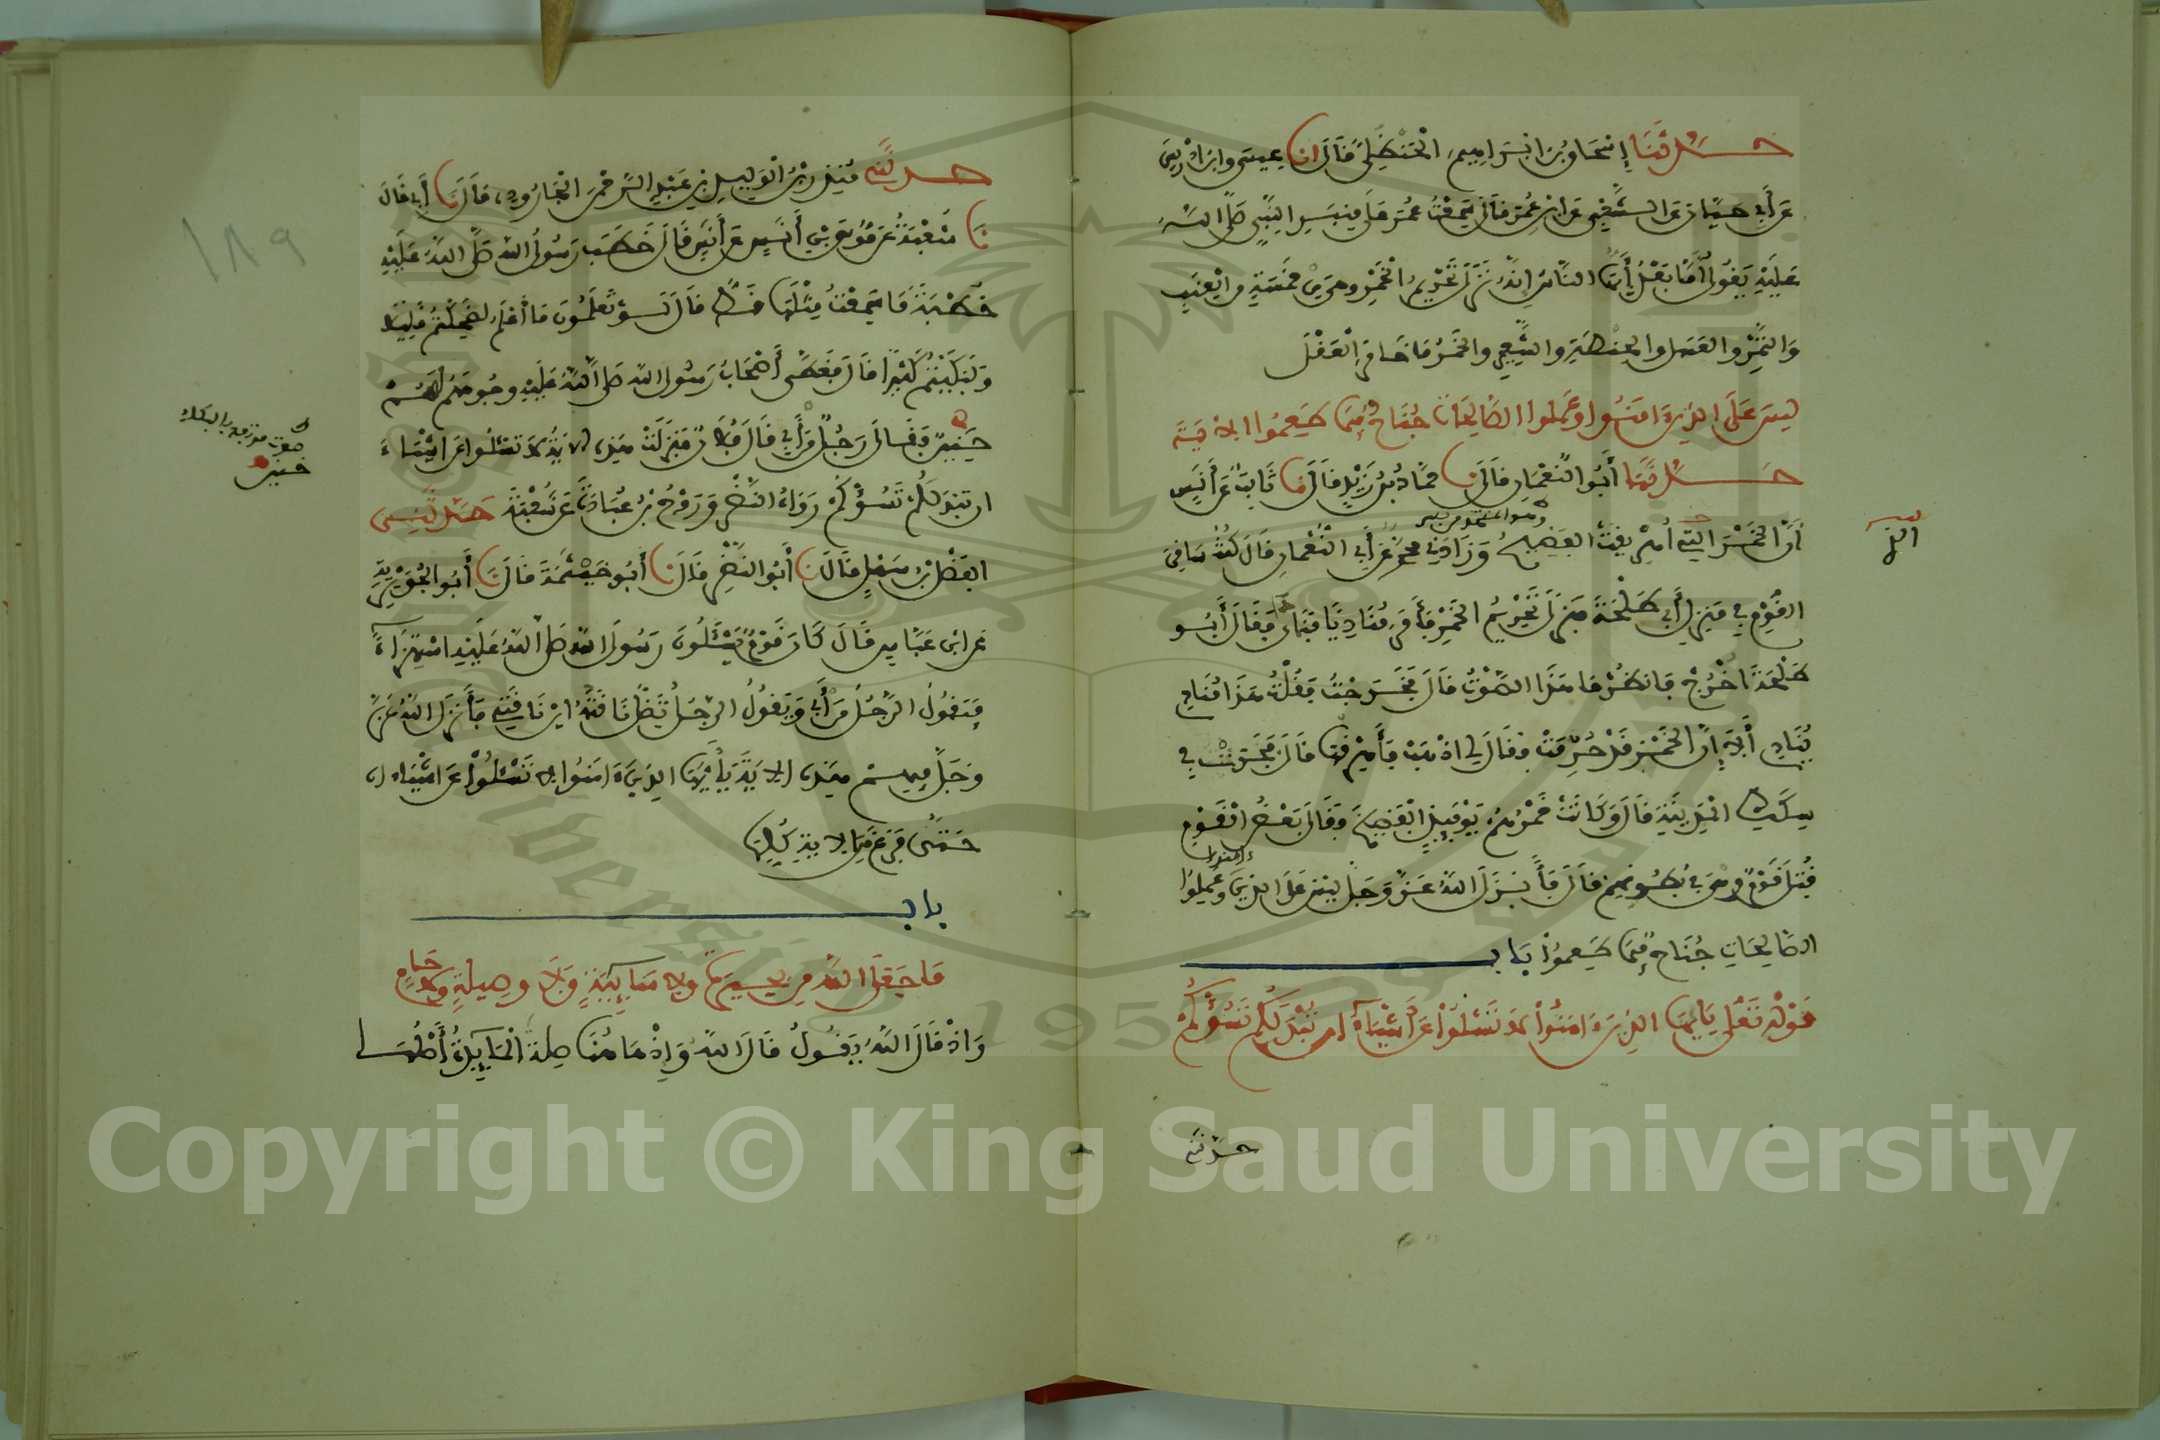 حدثنا إسحاق بن إبراهيم الحنظلي قال انا عيسى وابن ادريس
عن أبي حيان عن الشعبي عن ابن عمر قال سمعت عمر على منبر النبي صلى الله
عليه يقول أما بعد أيها الناس إنه نزل تحريم الخمر وهي من خمسة من العنب
والتمر والعسل والحنطة والشعير والخمر ما خامر العقل
ليس على الذين ءامنوا وعملوا الصالحات جناح فيما طعموا الاية
حدثنا أبو النعمان قال نا حماد بن زيد قال نا ثابت عن أنس
أن الخمر التي أهريقت الفضيخ وزادني محمد عن أبي النعمان قال كنت ساقي
القوم في منزل أبي طلحة فنزل تحريم الخمر فأمر مناديا فنادى فقال أبو
طلحة اخرج فانظر ما هذا الصوت قال فخرجت فقلت هذا مناد
ينادي ألا إن الخمر قد حرمت فقال لي اذهب فأهرقها قال فجرت في
سكك المدينة قال وكانت خمرهم يومئذ الفضيخ فقال بعض القوم
قتل قوم وهي في بطونهم قال فأنزل الله عز وجل ليس على الذين ءامنوا وعملوا
الصالحات جناح فيما طعموا باب
قوله تعلى يايها الذين ءامنوا لا تسئلوا عن أشياء ان تبد لكم تسؤكم
حدثني
حدثني منذر بن الوليد بن عبد الرحمن الجارودي قال نا أبي قال
نا شعبة عن موسى بن أنس عن أنس قال خطب رسول الله صلى الله عليه
خطبة ما سمعت مثلها قط قال لو تعلمون ما أعلم لضحكتم قليلا
ولبكيتم كثيرا قال فغطى أصحاب رسول الله صلى الله عليه وجوههم لهم
خنين فقال رجل من أبي قال فلان فنزلت هذه الاية لا تسئلوا عن اشياء
ان تبد لكم تسؤكم رواه النضر وروح بن عبادة عن شعبة حدثني
الفضل بن سهل قال نا أبو النضر قال نا أبو خيثمة قال نا أبو الجويرية
عن ابن عباس قال كان قوم يسئلون رسول الله صلى الله عليه استهزاء
فيقول الرجل من أبي ويقول الرجل تضل ناقته اين ناقتي فأنزل الله عز
وجل فيهم هذه الاية يأيها الذين ءامنوا لا تسئلوا عن اشياء
حتى فرغ من الاية كلها
باب
ما جعل الله من بحيرة ولا سائبة ولا وصيلة ولا حام
واذ قال الله يقول قال الله وإذ هاهنا صلة المائدة أصلها
صوت مرتفع بالبكاء
خنين
١٨٩